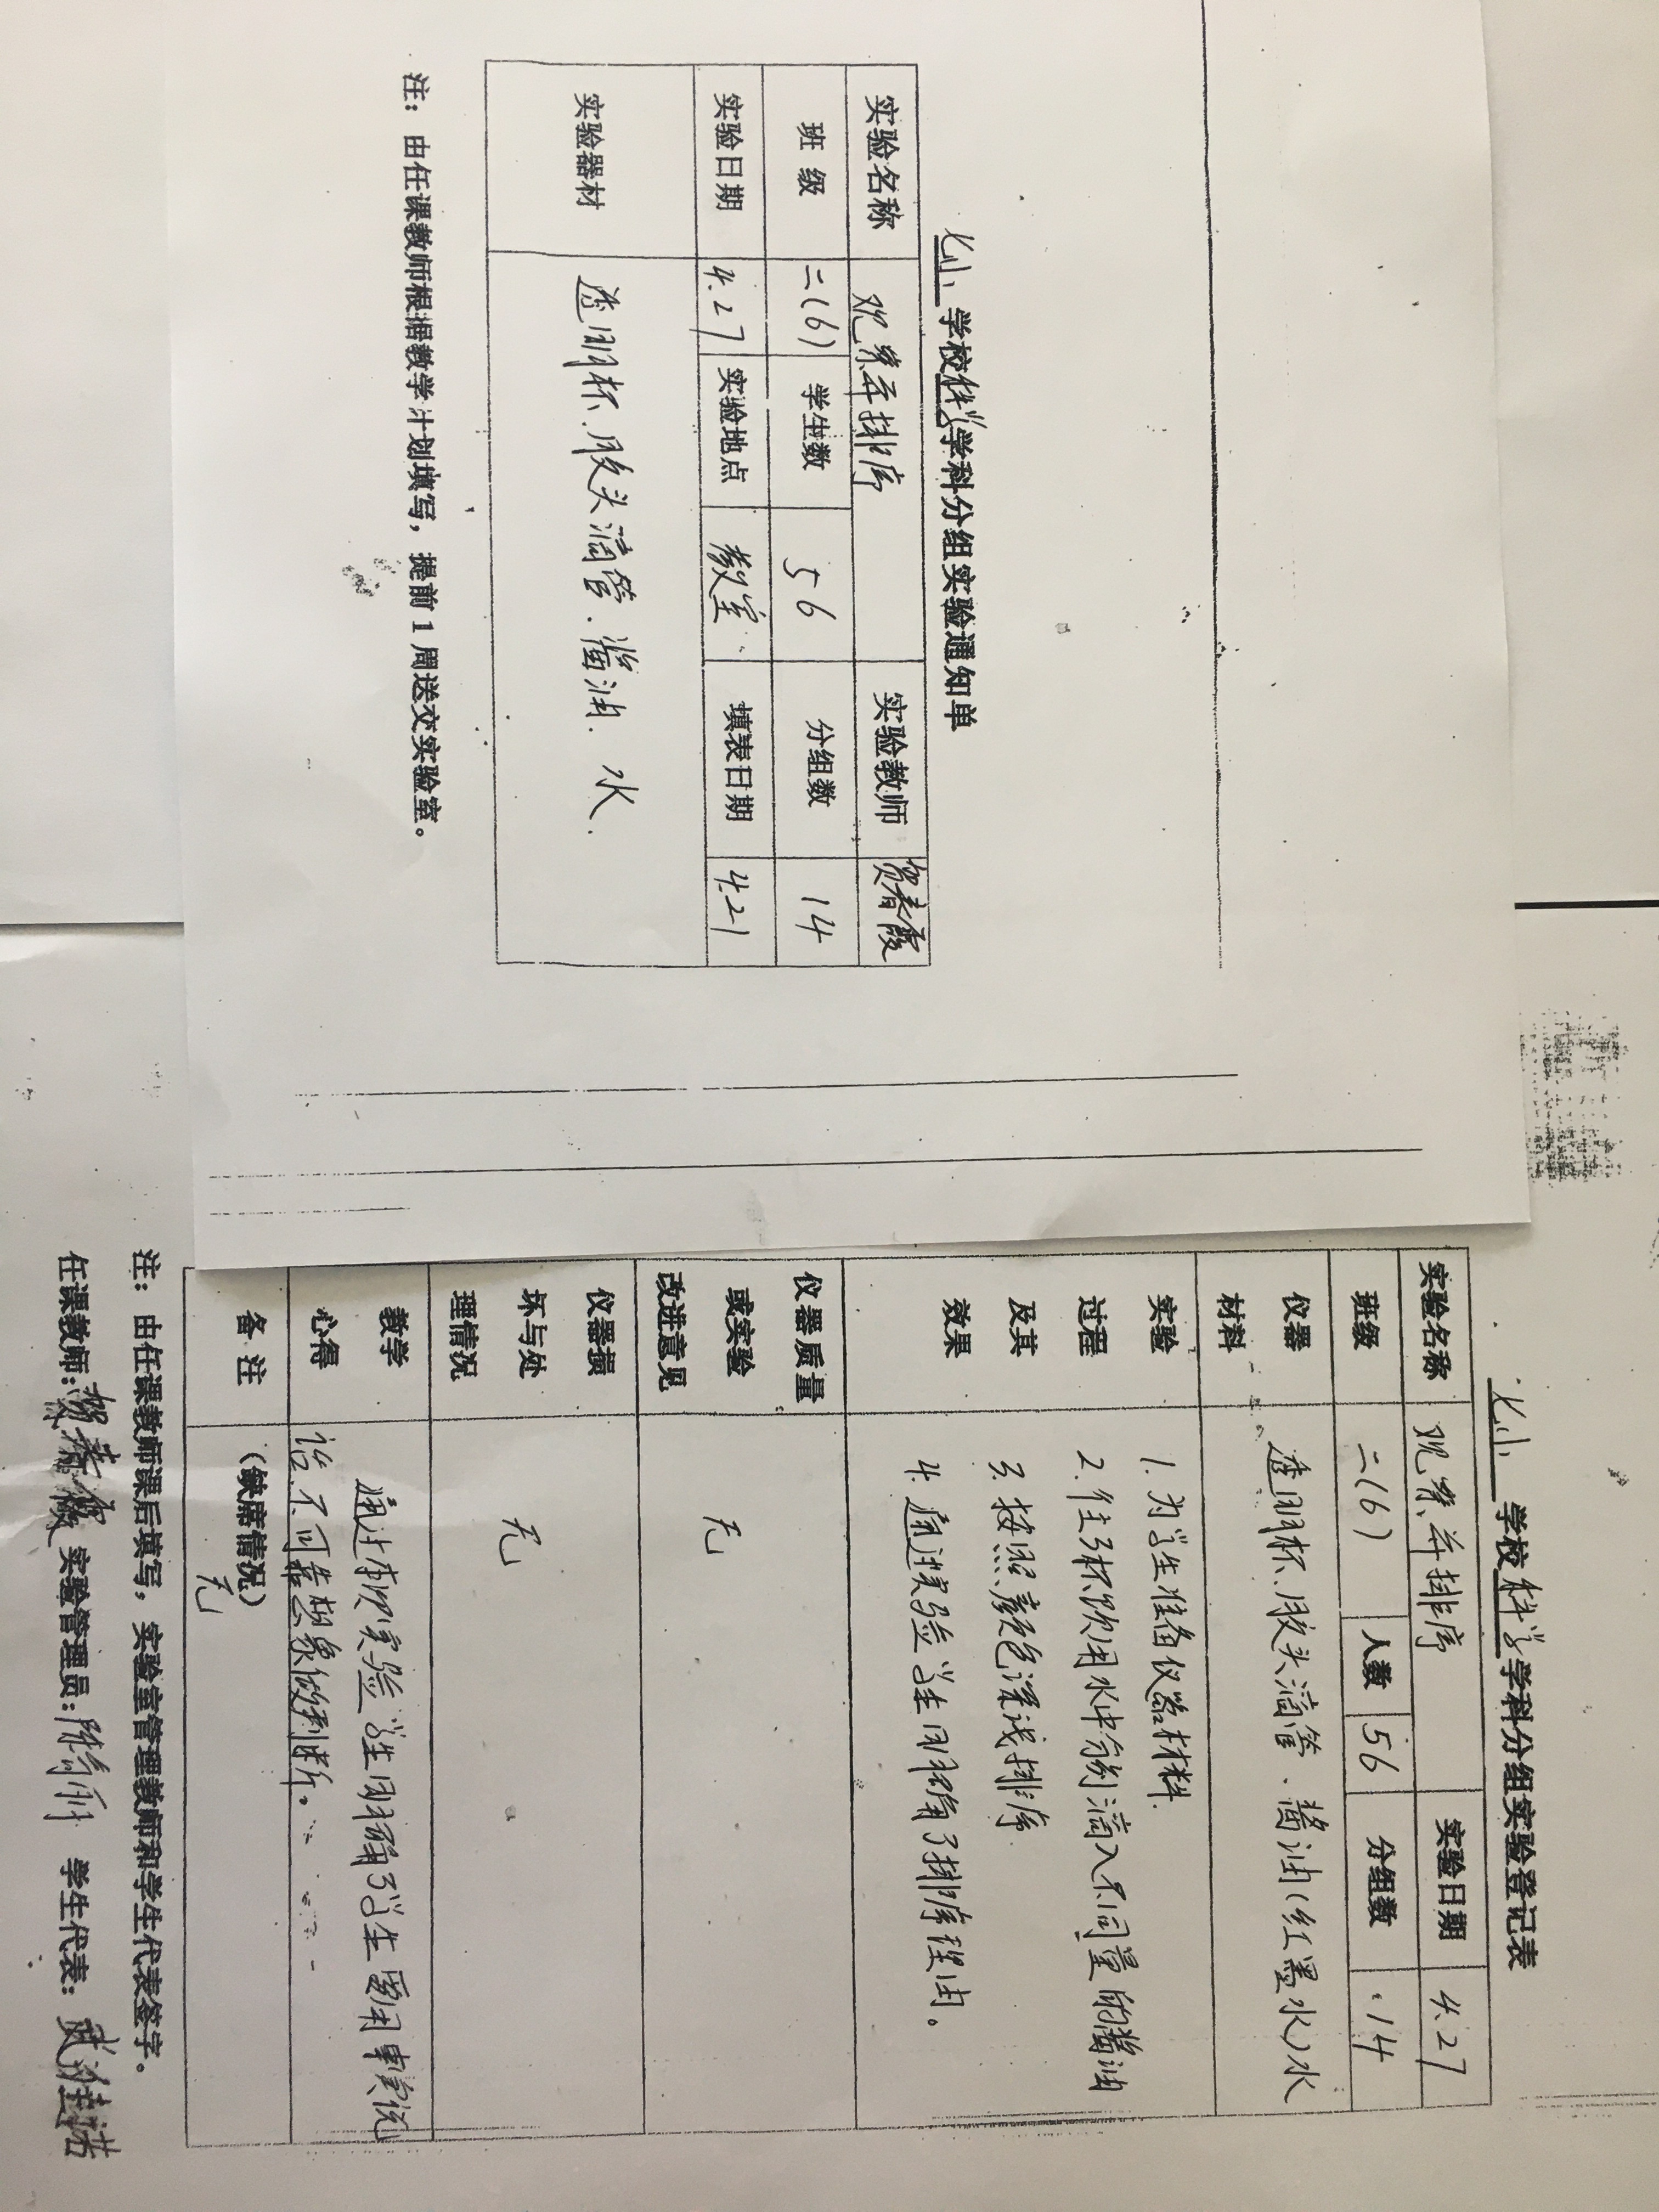 七小 学校科学学科分组实验通知单
实验名称 观察并排序 实验教师 贺春霞
班 级 二(6) 学生数 56 分组数 14
实验日期 4.27 实验地点 教室 填表日期 4.21
实验器材 透明杯、胶头滴管、酱油、水.
注：由任课教师根据教学计划填写，提前1周送交实验室。
七小 学校科学学科分组实验登记表
实验名称 观察并排序 实验日期 4.27
班级 二(6) 人数 56 分组数 14
仪器
材料
透明杯、胶头滴管、酱油(红墨水)水
实验
过程
及其
效果
1.为学生准备仪器材料.
2.在3杯饮用水中分别滴入不同量的酱油
3.按照颜色深浅排序
4.通过实验学生明确了排序理由。
仪器质量
或实验
改进意见
无
仪器损
坏与处
理情况
无
教学
心得
通过本次实验学生明确了学生要用事实说
话.不可靠想象做判断。
备 注 (缺席情况)
无
注：由任课教师课后填写，实验室管理教师和学生代表签字。
任课教师:贺春霞 实验管理员: 学生代表：